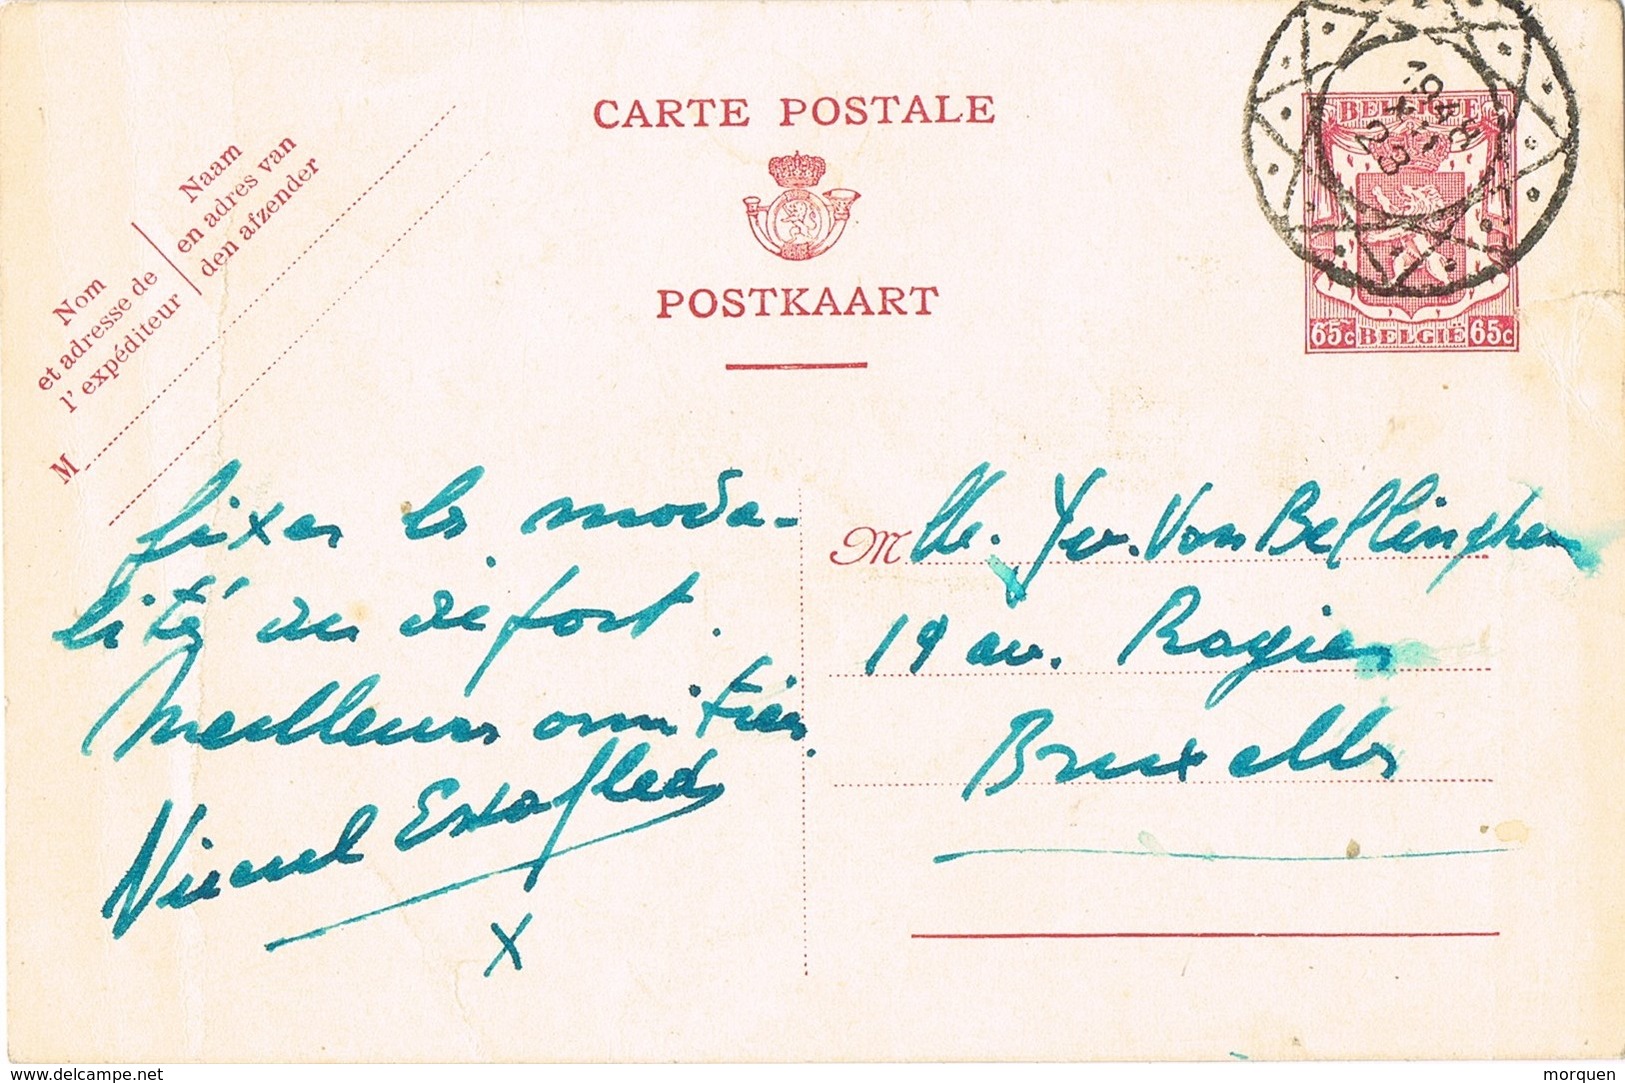 CARTE POSTALE
POSTKAART
Nom
et adresse de
l'expéditeur
Naam
en adres van
den afzender
M
BELGIQUE
65c BELGIE 65c
1948
XII
23
fixer les moda-
lités du départ.
Meilleures amitiés.
Mlle. Yv. Van Bellinghen
19 av. Rogier
Bruxelles
X
www.delcampe.net
morquen